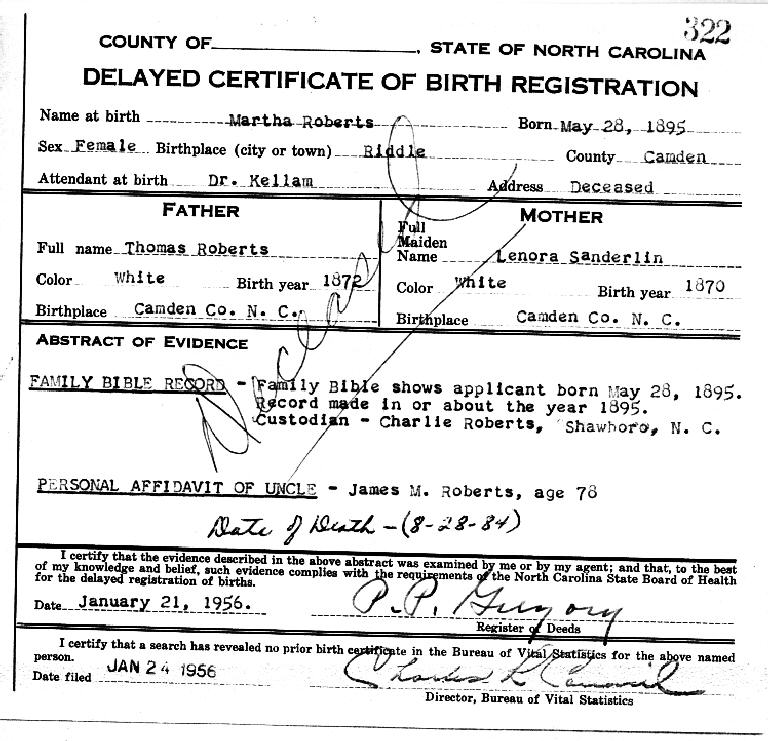 322
COUNTY OF , STATE OF NORTH CAROLINA
DELAYED CERTIFICATE OF BIRTH REGISTRATION
Name at birth Martha Roberts Born May 28, 1895
Sex Female Birthplace (city or town) Riddle County Camden
Attendant at birth Dr. Kellam Address Deceased
FATHER
Full name Thomas Roberts
Color White Birth year 1872
Birthplace Camden Co. N. C.
MOTHER
Full
Maiden
Name Lenora Sanderlin
Color White Birth year 1870
Birthplace Camden Co. N. C.
Deceased
ABSTRACT OF EVIDENCE
FAMILY BIBLE RECORD - Family Bible shows applicant born May 28, 1895.
Record made in or about the year 1895.
Custodian - Charlie Roberts, Shawboro, N. C.
PERSONAL AFFIDAVIT OF UNCLE - James M. Roberts, age 78
Date of Death - (8-28-84)
I certify that the evidence described in the above abstract was examined by me or by my agent; and that, to the best
of my knowledge and belief, such evidence complies with the requirements of the North Carolina State Board of Health
for the delayed registration of births.
Date January 21, 1956. P. P. Gregory
Register of Deeds
I certify that a search has revealed no prior birth certificate in the Bureau of Vital Statistics for the above named
person.
Date filed JAN 24 1956 Charles
Director, Bureau of Vital Statistics